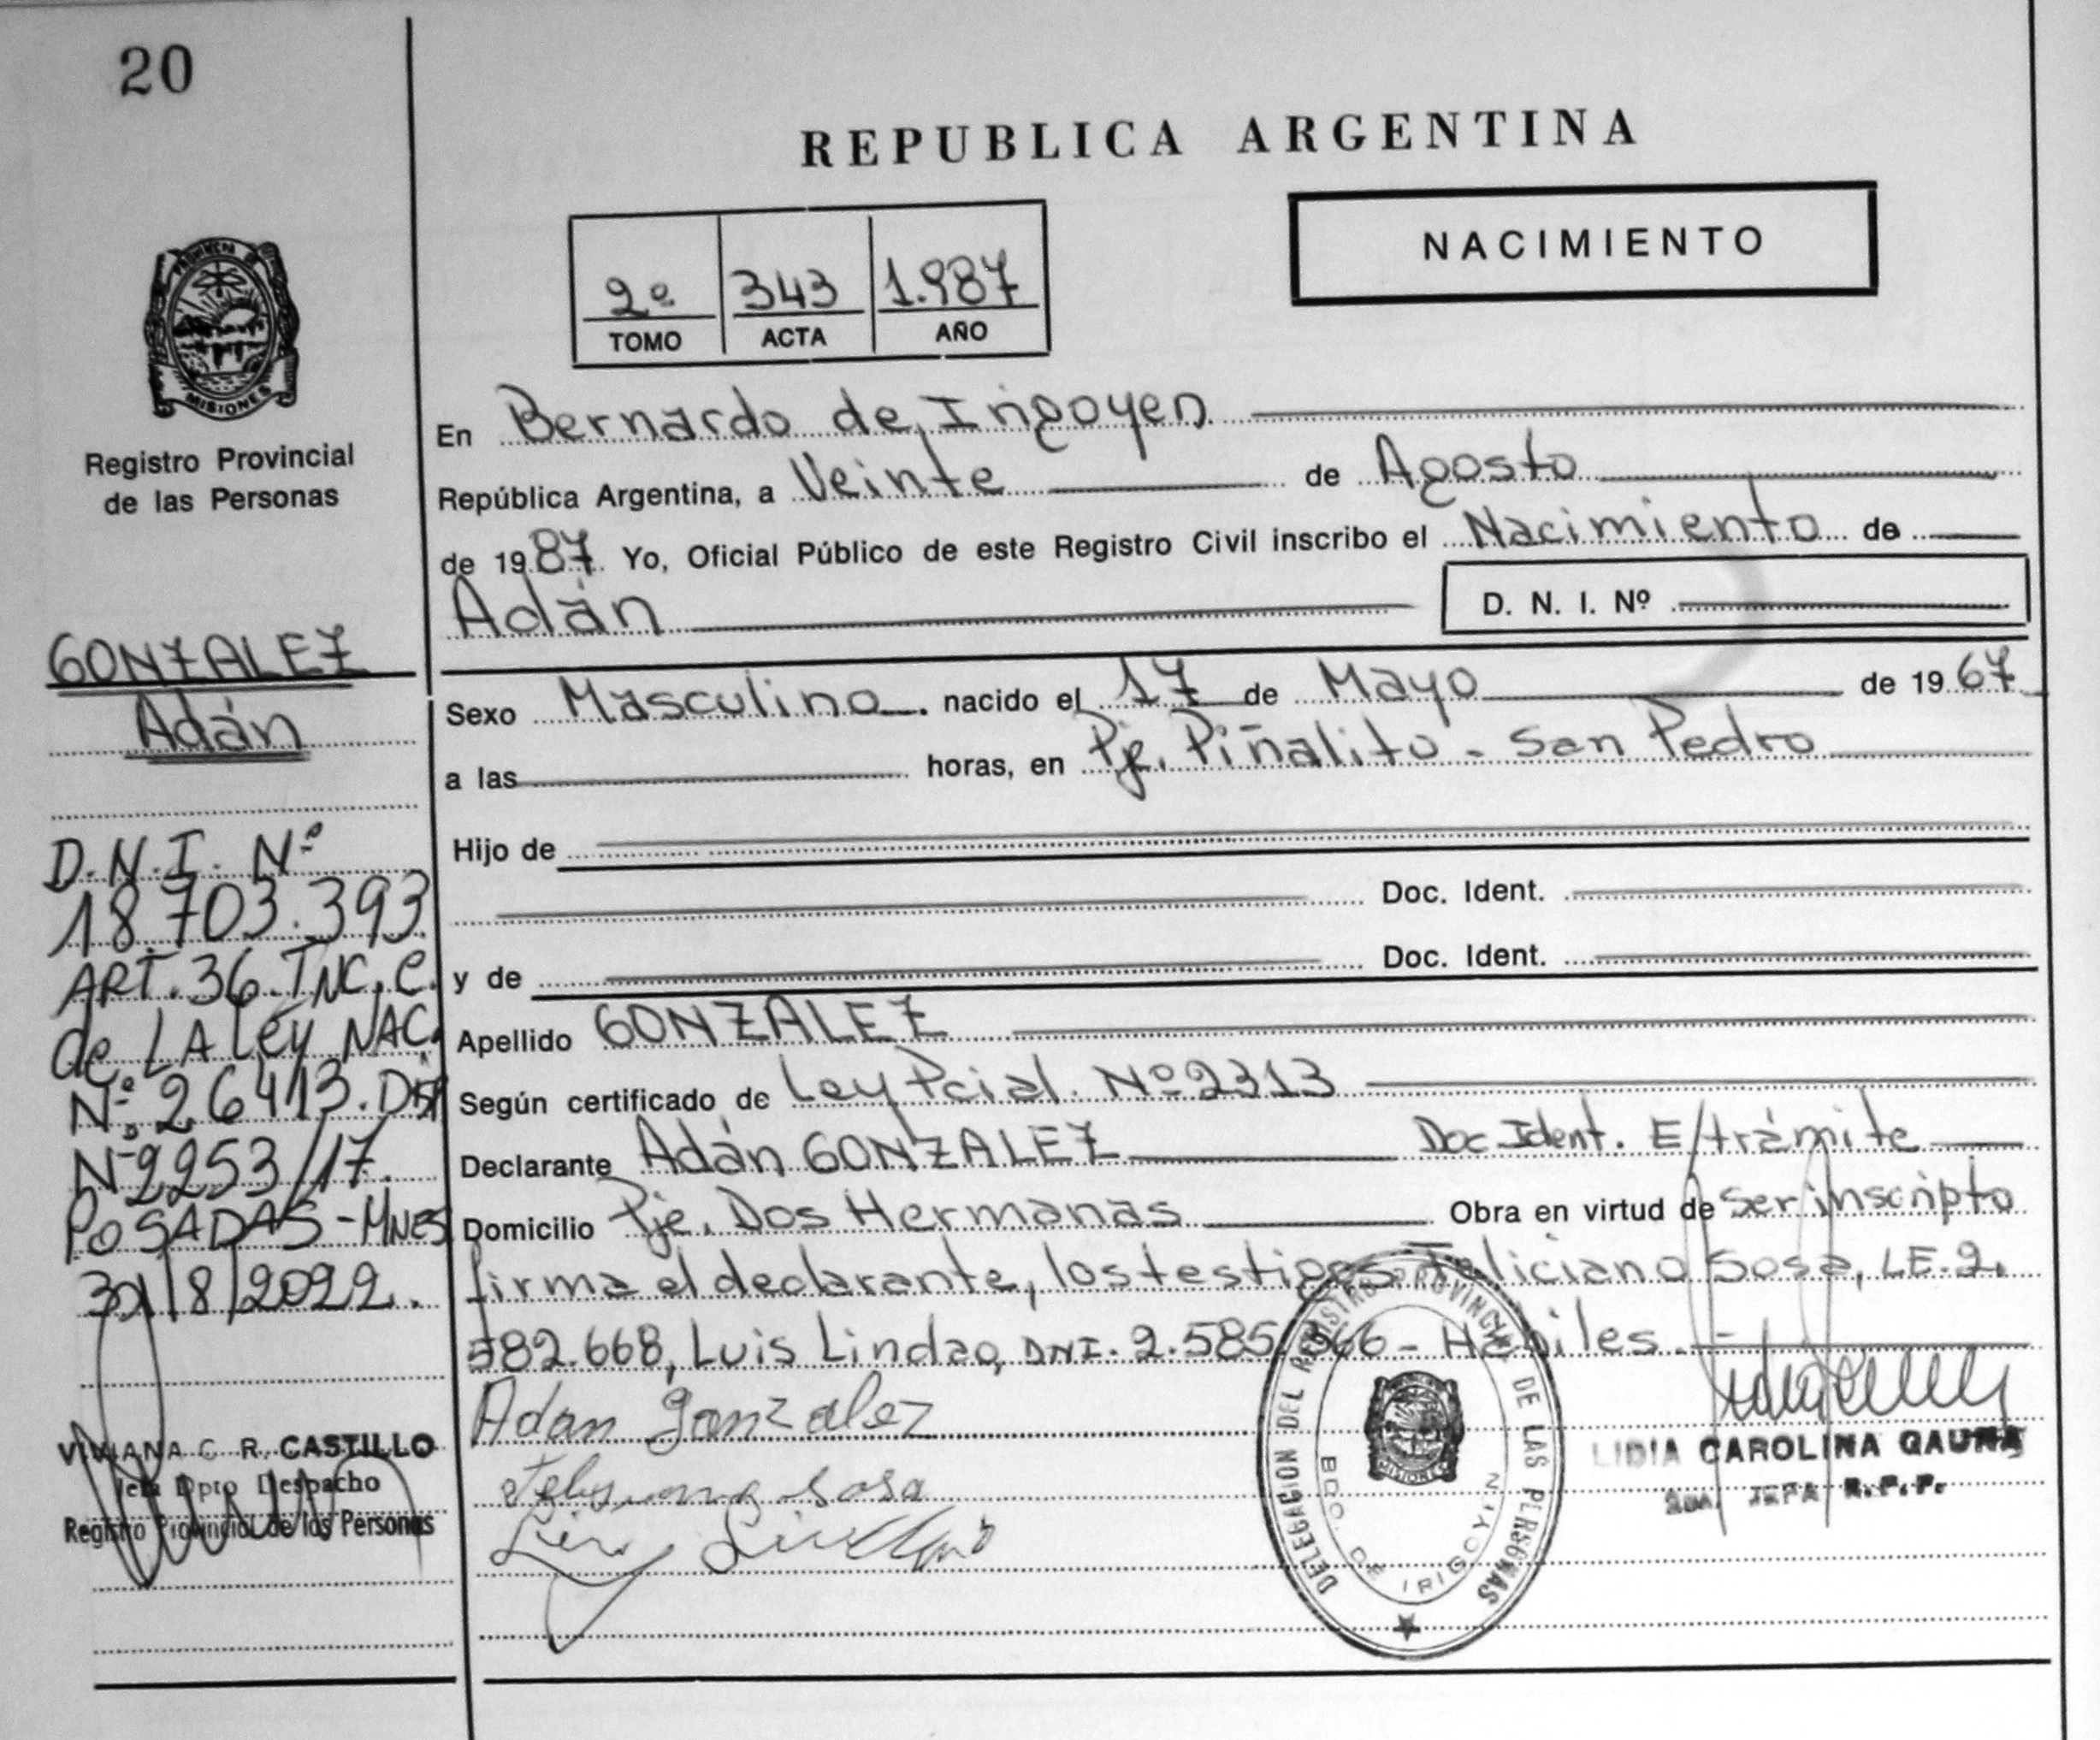 20
REPUBLICA ARGENTINA
NACIMIENTO
2º 343 1.987
TOMO ACTA AÑO
PROVINCIA DE
MISIONES
Registro Provincial
de las Personas
GONZALEZ
Adán
D.N.I. Nº
18.703.393
ART.36.INC.C.
de LA LEY NAC.
Nº 26413. DISP
Nº 2253/17.
POSADAS-MNES
31/8/2022.
VIVIANA C. R. CASTILLO
Jefa Dpto Despacho
Registro Provincial de las Personas
En Bernardo de Irigoyen
República Argentina, a Veinte de Agosto
de 1987. Yo, Oficial Público de este Registro Civil inscribo el Nacimiento de
Adán D. N. I. Nº
Sexo Masculino. nacido el 17 de Mayo de 1967
a las horas, en Pje. Piñalito - San Pedro
Hijo de
Doc. Ident.
y de Doc. Ident.
Apellido GONZALEZ
Según certificado de Ley Pcial. Nº 2313
Declarante Adán GONZALEZ Doc Ident. E/trámite
Domicilio Pje. Dos Hermanas Obra en virtud de ser inscripto
firma el declarante, los testigos Feliciano Sosa, LE.2.
582.668, Luis Lindao, DNI. 2.585.366 - Hábiles.-
Adan Gonzalez
Sosa
DELEGACION DEL REGISTRO PROVINCIAL DE LAS PERSONAS
BDO. DE IRIGOYEN
MISIONES
LIDIA CAROLINA GAUNA
JEFA R.P.P.